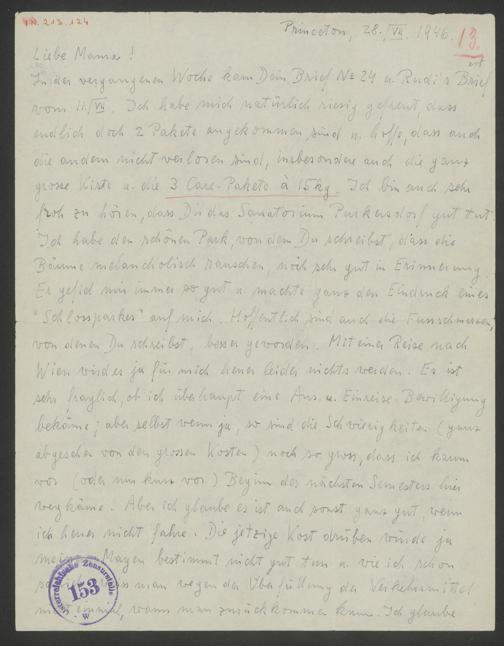 I.N. 213.124
Princeton, 28./VII. 1946.
13.
Liebe Mama!
erst
In der vergangenen Woche kam Dein Brief № 24 u. Rudi's Brief
vom 11./VII. Ich habe mich natürlich riesig gefreut, dass
endlich doch 2 Pakete angekommen sind u. hoffe, dass auch
die andern nicht verloren sind, insbesondere auch die ganz
grosse Kiste u. die 3 Care-Pakete à 15 kg. Ich bin auch sehr
froh zu hören, dass Dir das Sanatorium Purkersdorf gut tut.
Ich habe den schönen Park, von dem Du schreibst, dass die
Bäume melancholisch rauschen, noch sehr gut in Erinnerung.
Er gefiel mir immer so gut u. machte ganz den Eindruck eines
"Schlossparkes" auf mich. Hoffentlich sind auch die Fussschmerzen,
von denen Du schreibst, besser geworden. Mit einer Reise nach
Wien wird es ja für mich heuer leider nichts werden. Es ist
sehr fraglich, ob ich überhaupt eine Aus- u. Einreise-Bewilligung
bekäme; aber selbst wenn ja, so sind die Schwierigkeiten (ganz
abgesehen von den grossen Kosten) noch so gross, dass ich kaum
vor (oder nur kurz vor) Beginn des nächsten Semesters hier
wegkäme. Aber ich glaube es ist auch sonst ganz gut, wenn
ich heuer nicht fahre. Die jetzige Kost drüben würde ja
meinem Magen bestimmt nicht gut tun u. wie ich schon
man wegen der Überfüllung der Verkehrsmittel
nicht einmal, wann man zurückkommen kann. Ich glaube
Österreichische Zensurstelle
153
W